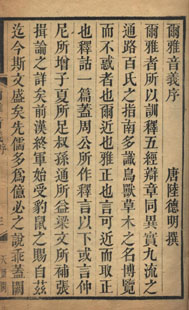 爾雅音義序 唐陸德明撰
爾雅者所以訓釋五經辯章同異實九流之
通路百氏之指南多識鳥獸草木之名博覽
而不惑者也爾近也雅正也言可近而取正
也釋詁一篇蓋周公所作釋言以下或言仲
尼所增子夏所足叔孫通所益梁文所補張
揖論之詳矣前漢終軍始受豹鼠之賜自茲
迄今斯文盛矣先儒多為億必之說乖蓋闕